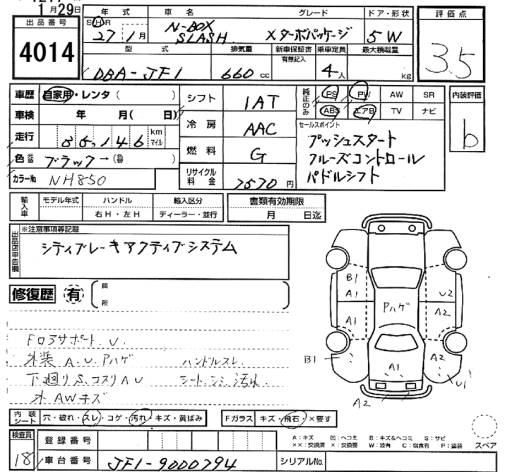 月29日
出品番号 4014
年式 車名 グレード ドア・形状 評価点
27 1月 N-BOX SLASH X ターボパッケージ 5W 3.5
型式 排気量 新車保証書 有無記入 乗車定員 最大積載量
DBA-JF1 660cc 4人 kg
車歴 自家用・レンタ ( )
車検 年 月( 日)
走行 86,146 km マイル
色替 ブラック→
カラーNo NH850
シフト 1AT
冷房 AAC
燃料 G
リサイクル料金 7570円
純正のみ PS PW AW SR
ABS エアB TV ナビ
内装評価 b
セールスポイント
プッシュスタート
クルーズコントロール
パドルシフト
輸入車 モデル年式 ハンドル 輸入区分 書類有効期限
右H・左H ディーラー・並行 月 日迄
出品店申告欄 ※注意事項等記載
シティブレーキアクティブシステム
修復歴 有 箇所
外装 A.U. Pハゲ ハンドルスレ
下廻りS. コスリAU シートシミ汚れ
外AWキズ
B1 A1 Pハゲ U2 A2
A1
B1 A2 U1
A2
内装シート 穴・破れ・スレ・コゲ・汚れ・キズ・黄ばみ Fガラス キズ・飛石・×要す
A:キズ U:ヘコミ B:キズ&ヘコミ S:サビ
スペア
検査員 18 登録番号
車台番号 JF1-9000794 シリアルNo.